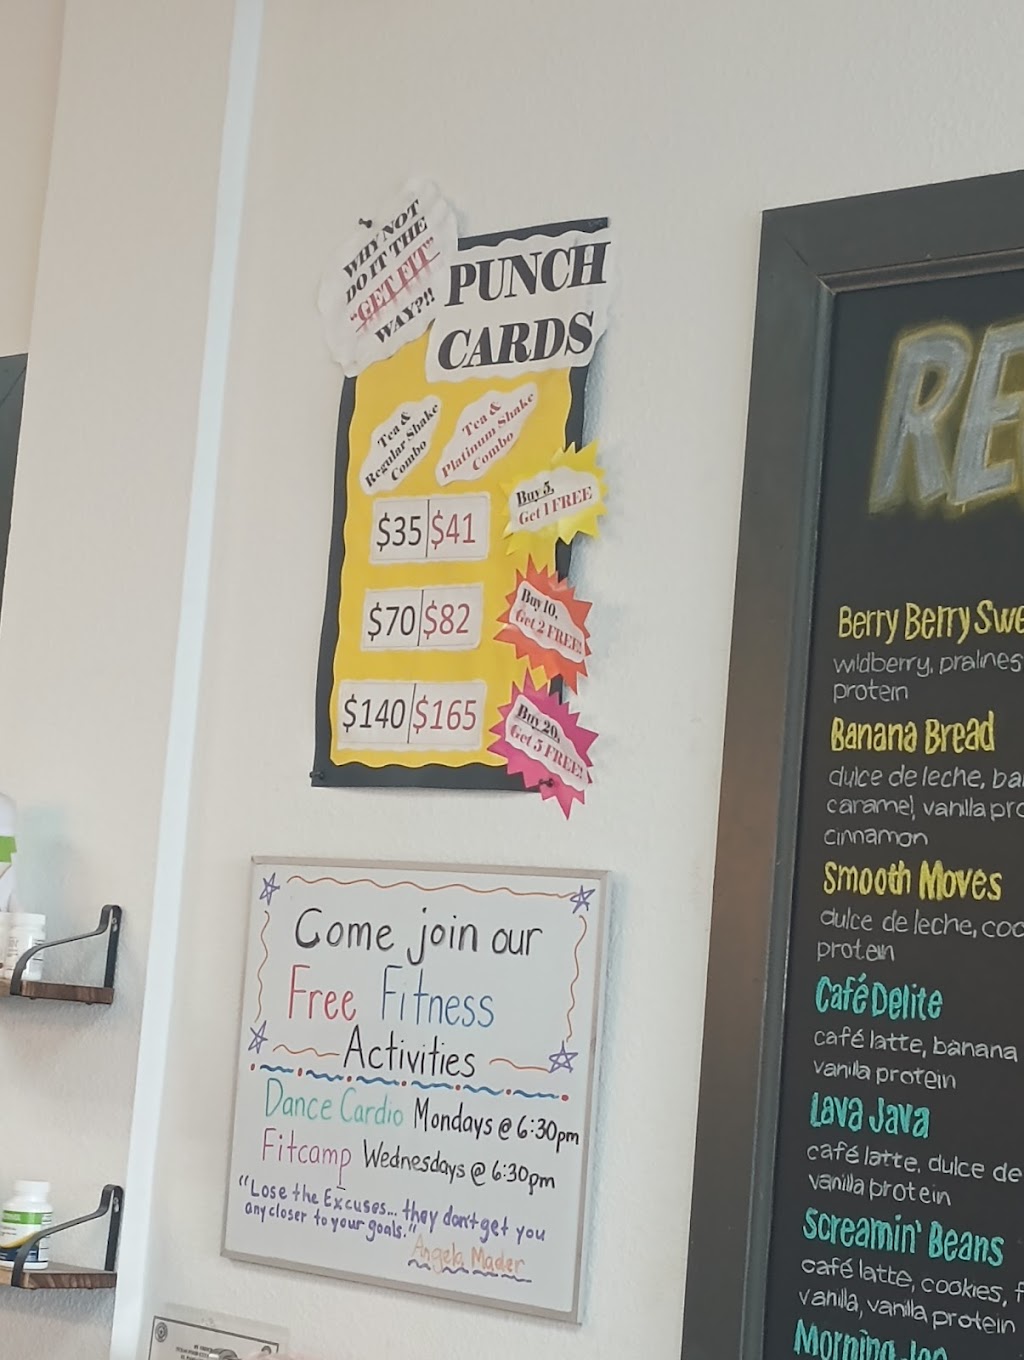 WHY NOT
DO IT THE
"GET FIT"
WAY?!!
PUNCH
CARDS
Tea &
Regular Shake
Combo
Tea &
Platinum Shake
Combo
$35 $41
Buy 5,
Get 1 FREE
$70 $82
Buy 10,
Get 2 FREE!
$140 $165
Buy 20,
Get 5 FREE!
Come join our
Free Fitness
Activities
Dance Cardio Mondays @ 6:30pm
Fitcamp Wednesdays @ 6:30pm
"Lose the Excuses... they don't get you
any closer to your goals."
Angela Mader
RE
Berry Berry Swe
wildberry, pralines
protein
Banana Bread
dulce de leche, ba
caramel, vanilla pro
cinnamon
Smooth Moves
dulce de leche, coo
protein
Café Delite
café latte, banana
vanilla protein
Lava Java
café latte, dulce de
vanilla protein
Screamin' Beans
café latte, cookies, f
vanilla, vanilla protein
Morning Joe